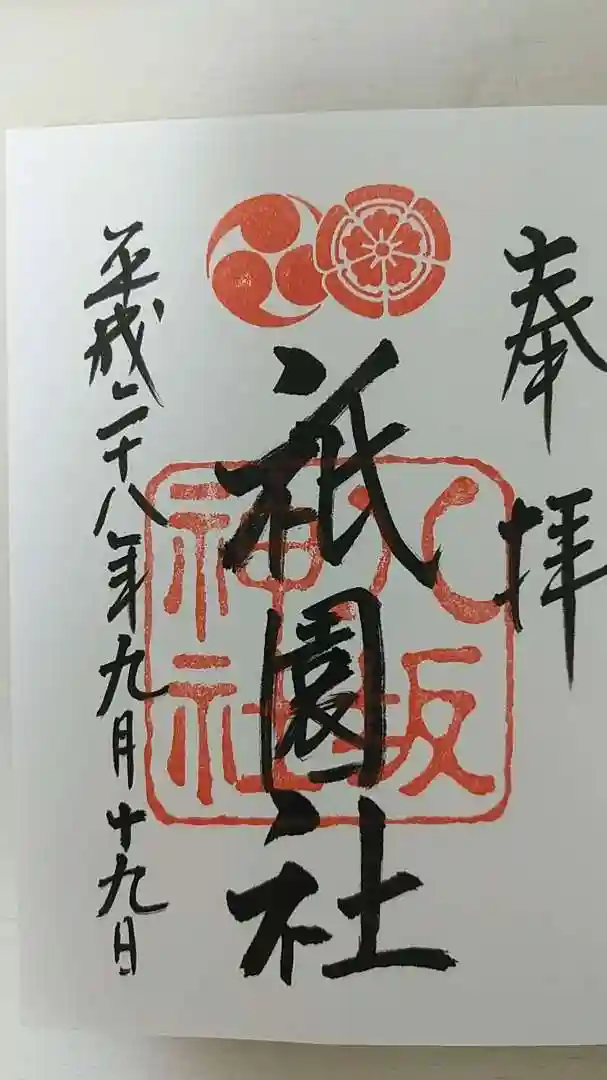 奉拝
祇園社
八坂
神社
平成二十八年九月十九日